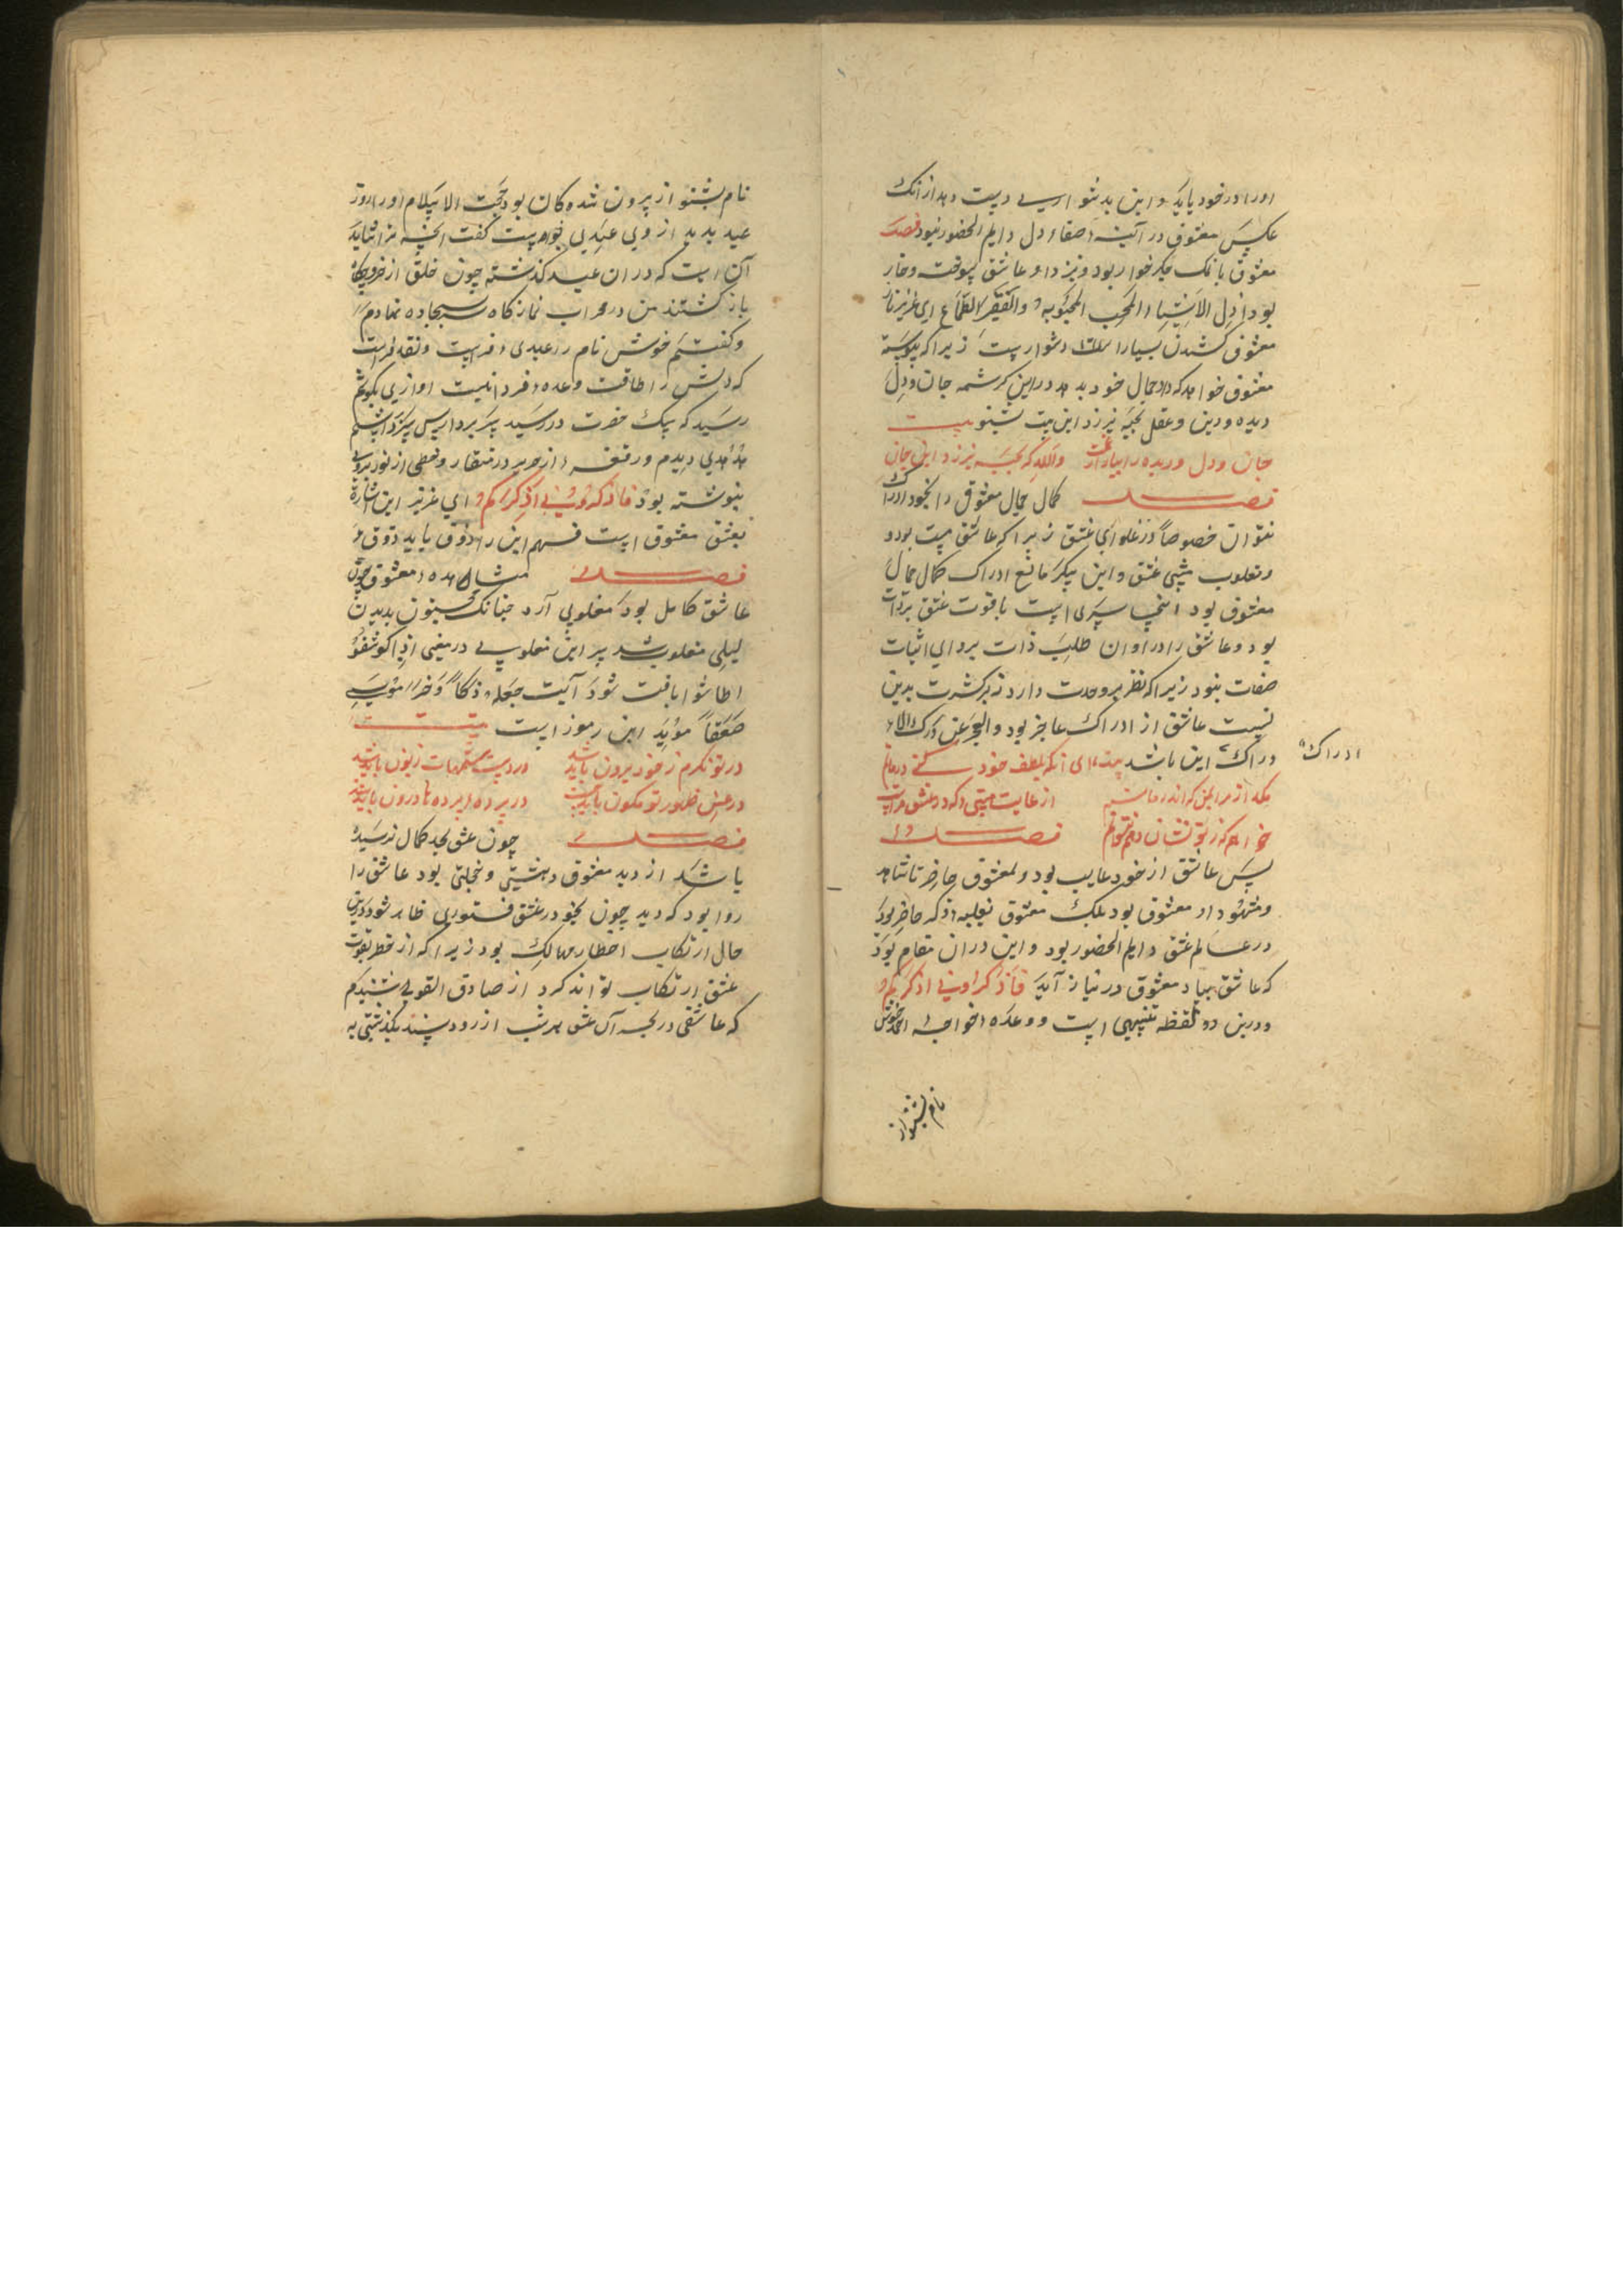 اورا در خود یابد و این بدشواری دست دهد از آنک
عکس معشوق در آینه صفاء دل دایم الحضور نبود فصل
معشوق با نمک جگر خوار بود و نیز دارد عاشق سوخته و خار
بود اذل الاشیاء المحب لمحبوبه والفقیر الطماع ای عزیز ناز
معشوق کشیدن بسیار دشوارست زیرا که پیوسته
معشوق خواهد که داد جمال خود بدهد در این کرشمه جان و دل
دیده و دین و عقل بحبه نیرزد این بیت بشنو بیت
جان و دل و دیده را والله که بحبه نیرزد این جان
فصل کمال جمال معشوق را بخود ادراک
نتوان خصوصاً در غلوای عشق زیرا که عاشق مست بود و
و مغلوب عشق و این سکر مانع ادراک کمال جمال
معشوق بود اینجا سری است با قوت عشق بر ذات
بود و عاشق را در اوان طلب ذات پروای اثبات
صفات نبود زیرا که نظر بر وحدت دارد نه بر کثرت بدین
نسبت عاشق از ادراک عاجز بود والعجز عن درک الا
دراک این باشد بیت ای آنکه بلطف خود
ادراک
بلکه از من که اندر از غایت که در عشق مراست
خواهم که ز تو نشان دهم نتوانم فصل
پس عاشق از خود غایب بود و معشوق حاضر تا شاهد
و مشهود او معشوق بود بلک معشوق حاضر بود
در عالم عشق دایم الحضور بود و این در آن مقام بود
که عاشق بیاد معشوق در نیاز آید فاذکرونی اذکرکم
و درین دو لفظه تنبیهی است و وعده خواجه احمد خوش
نام بشنو از
نام بشنو از بیرون شده کان بود حجت الاسلام او را روز
عید بدید از وی عیدی خواست گفت آنچه ترا شاید
آن است که در آن عید گذشته چون خلق از خروج گاه
باز گشتند من در محراب نماز گاه سر بسجاده نهادم
و گفتم خوش نام را عیدی فرست و نقد فرست
که دلش را طاقت وعده فردا نیست آوازی بگوشم
رسید که پیک حضرت در رسید سر بردار پس سر برداشتم
هدهدی دیدم و رقعه از حریر در منقار و خطی از نور بروی
نبوشته بود فاذکرونی اذکرکم ای عزیز این اشارة
بعشق معشوق است فهم این را ذوق باید ذوق
فصل مشاهده معشوق چون
عاشق کامل بود مغلوبی آرد چنانک مجنون بدیدن
لیلی مغلوب شد پس این مغلوبی در معنی اذا کوشفوا
طاشوا یافت شود آیت جعله دکاً وخر موسی
صعقاً مؤید این رموز است بیت
در تو نگرم ز خود برون باید شد در دست زبون باید شد
در عین ظهور تو نگون باید شد در پرده درون باید شد
فصل چون عشق بحد کمال نرسیده
باشد از دید معشوق دهشتی و خجلتی بود عاشق را
روا بود که دید چون بخود در عشق فتوری ظاهر شود درین
حال ارتکاب اخطار مهالک بود زیرا که از خطر بقوت
عشق ارتکاب تواند کرد از صادق القولی شنیدم
که عاشقی در لجه آن عشق هر شب از رود سند بگذشتی به